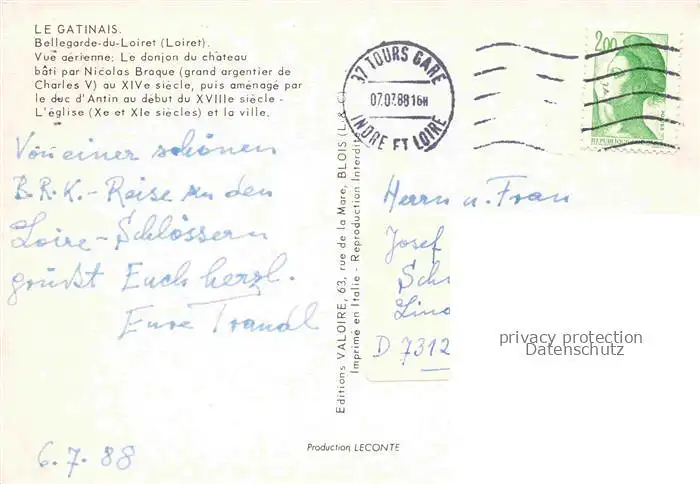 LE GATINAIS.
Bellegarde-du-Loiret (Loiret).
Vue aérienne: Le donjon du château
bâti par Nicolas Braque (grand argentier de
Charles V) au XIVe siècle, puis aménagé par
le duc d'Antin au début du XVIIIe siècle -
L'église (Xe et XIe siècles) et la ville.
Von einer schönen
B.R.K.-Reise zu den
Loire-Schlössern
grüßt Euch herzl.
Eure Traudl
6.7.88
Editions VALOIRE, 63, rue de la Mare, BLOIS (L.-&-C.)
Imprimé en Italie - Reproduction Interdite
Production LECONTE
37 TOURS GARE
07.07.88 16H
INDRE ET LOIRE
2,00
Herrn u. Frau
Josef
Sch
D 7312
privacy protection
Datenschutz